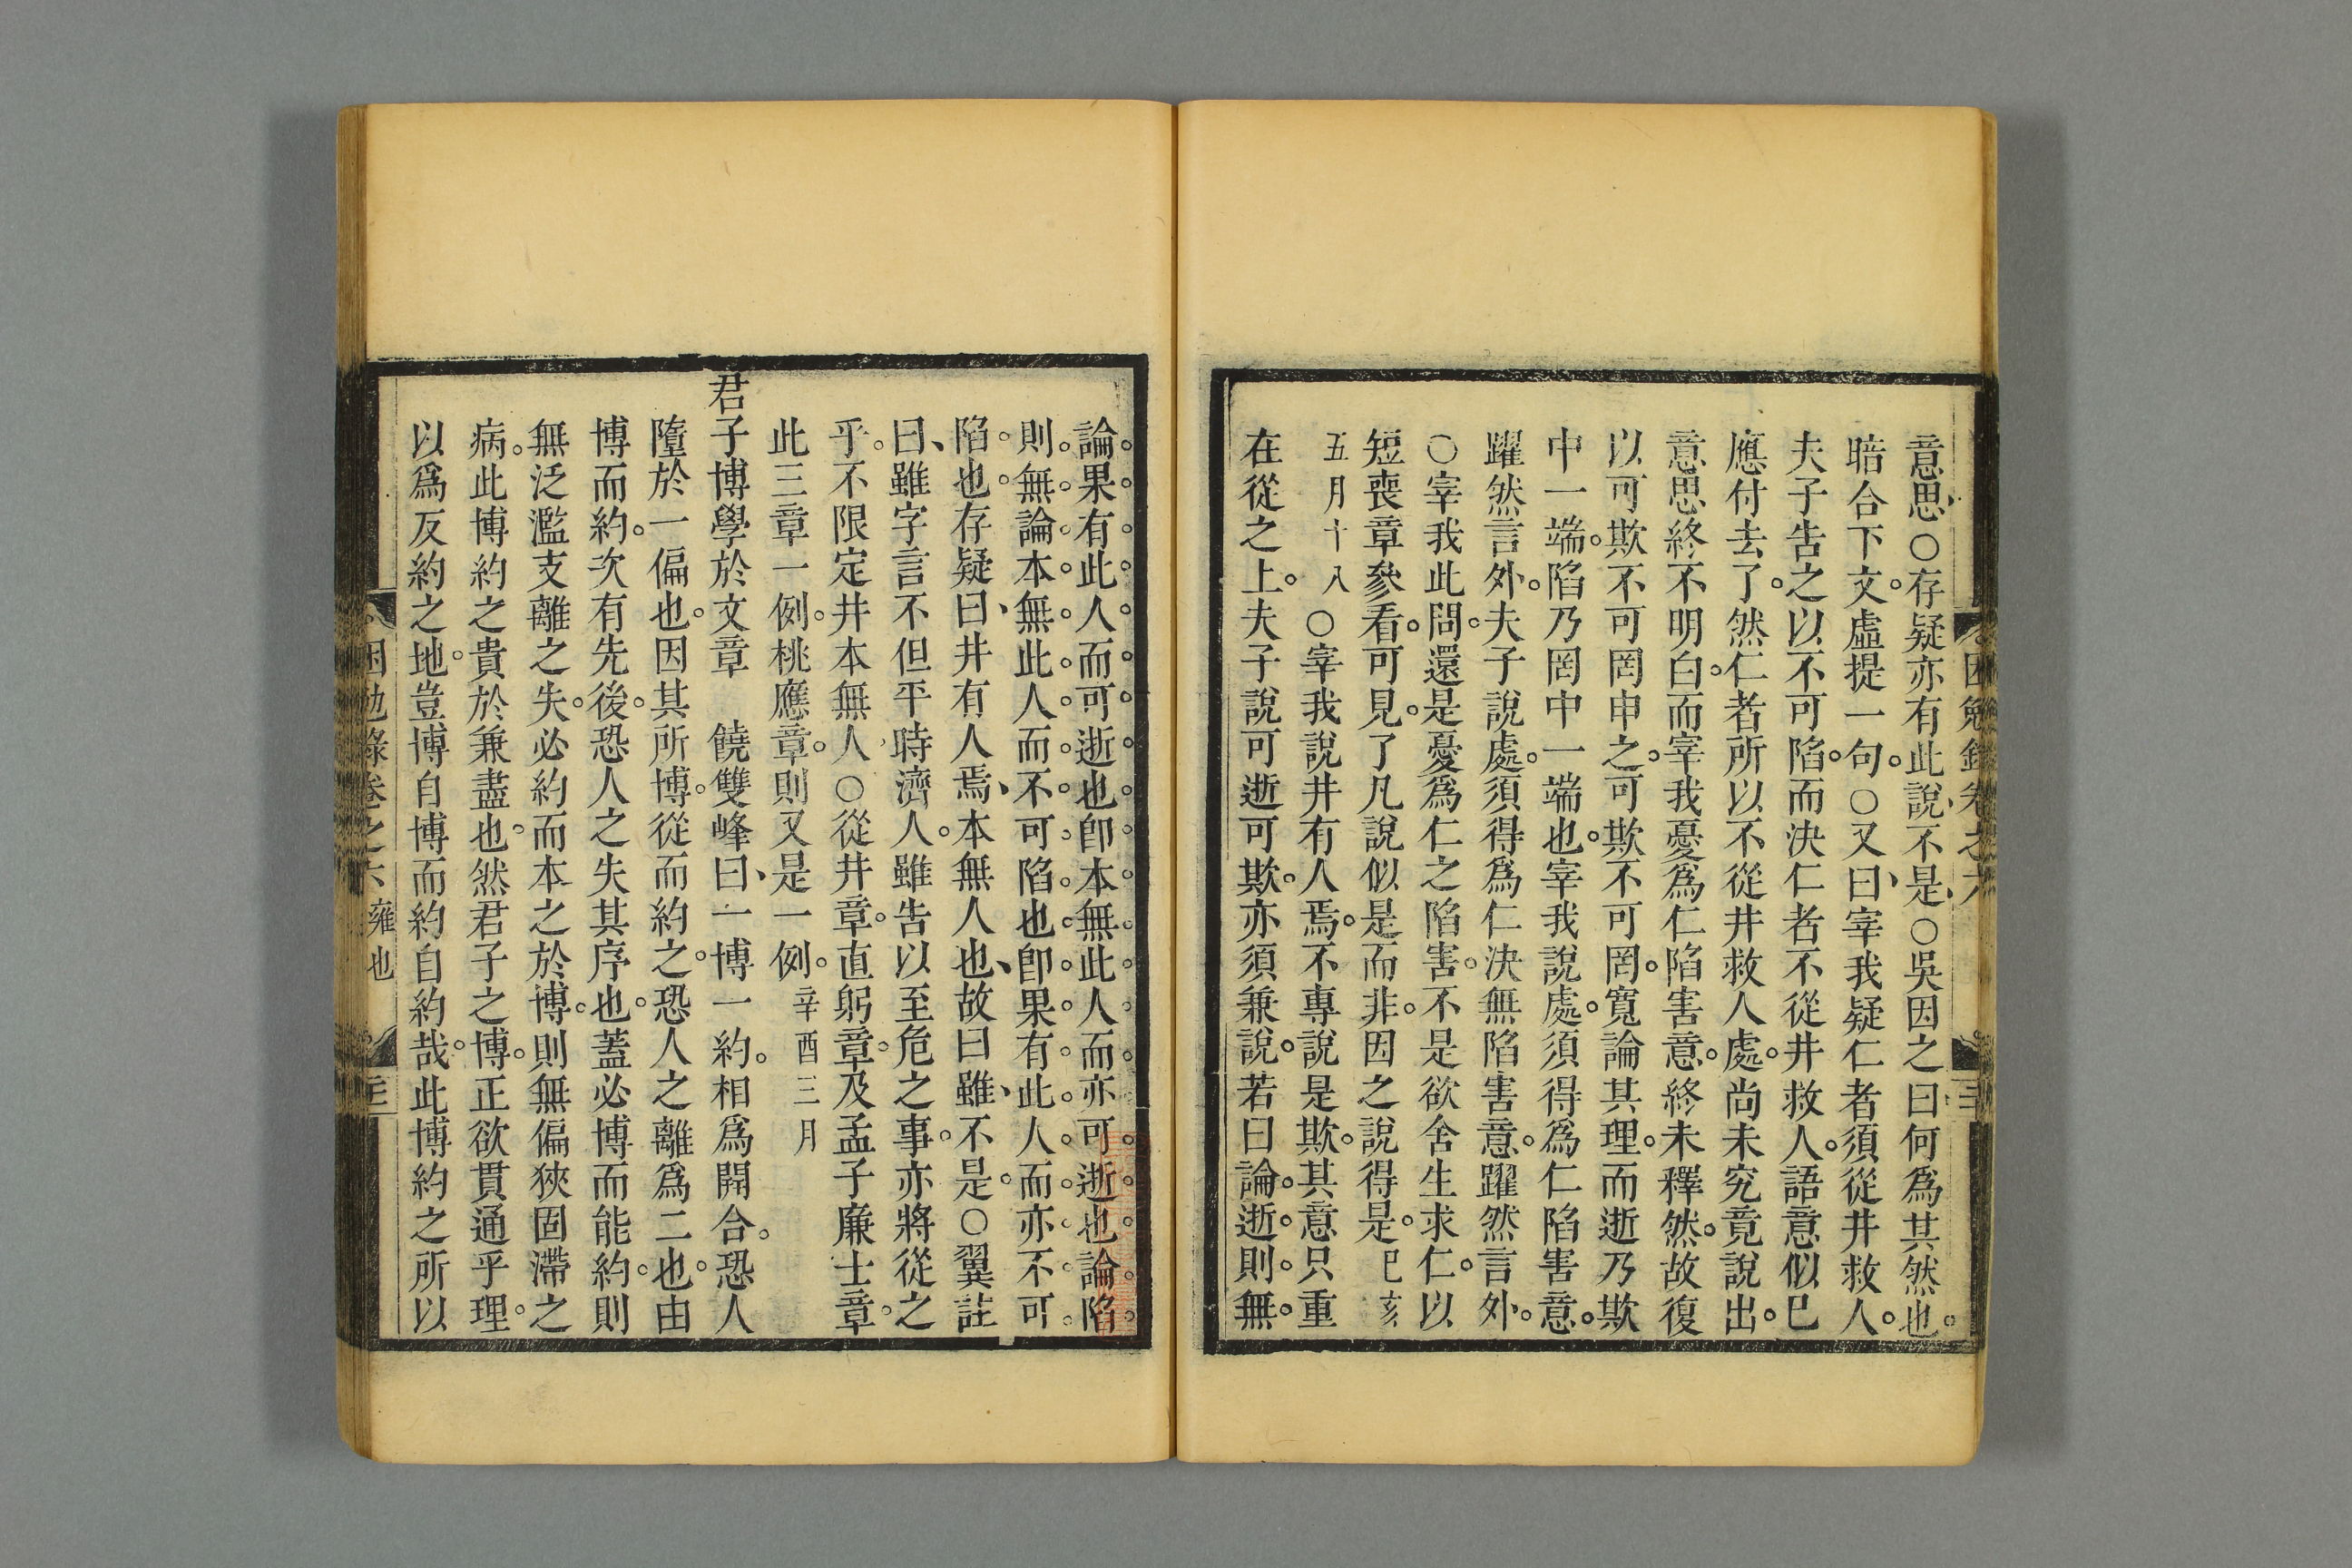 意思○存疑亦有此說、不是○吳因之曰何爲其然也。
暗合下文。虛提一句。○又曰、宰我疑仁者須從井救人。
夫子告之以不可陷。而決仁者不從井救人。語意似巳
應付去了。然仁者所以不從井救人處。尚未究竟說出。
意思終不明白。而宰我憂爲仁陷害意。終未釋然。故復
以可欺不可罔申之。可欺不可罔。寬論其理。而逝乃欺
中一端。陷乃罔中一端也。宰我說處。須得爲仁陷害意。
躍然言外。夫子說處。須得爲仁決無陷害意。躍然言外。
○宰我此問。還是憂爲仁之陷害。不是欲舍生求仁。以
短喪章參看。可見。了凡說似是而非。因之說得是。巳亥
五月十八○宰我說井有人焉。不專說是欺。其意只重
在從之上。夫子說可逝可欺。亦須兼說。若曰論。逝。則。無。
論。果。有。此。人。而。可。逝。也。卽。本。無。此。人。而。亦。可。逝。也。論。陷。
則。無。論。本。無。此。人。而。不。可。陷。也。卽。果。有。此。人。而。亦。不。可。
陷。也。存疑、曰井有人焉、本無人也、故曰雖、不是。○翼註
曰、雖字言不但平時濟人。雖告以至危之事。亦將從之
乎。不限定井本無人、○從井章。直躬章。及孟子廉士章。
此三章一例。桃應章。則又是一例。辛酉三月
君子博學於文章 饒雙峰曰、一博一約。相爲開合。恐人
墮於一偏也。因其所博。從而約之。恐人之離爲二也。由
博而約。次有先後。恐人之失其序也。蓋必博而能約。則
無泛濫支離之失。必約而本之於博。則無偏狹固滯之
病。此博約之貴於兼盡也。然君子之博。正欲貫通乎理。
以爲反約之地。豈博自博而約自約哉。此博約之所以
困勉錄卷之六 雍也